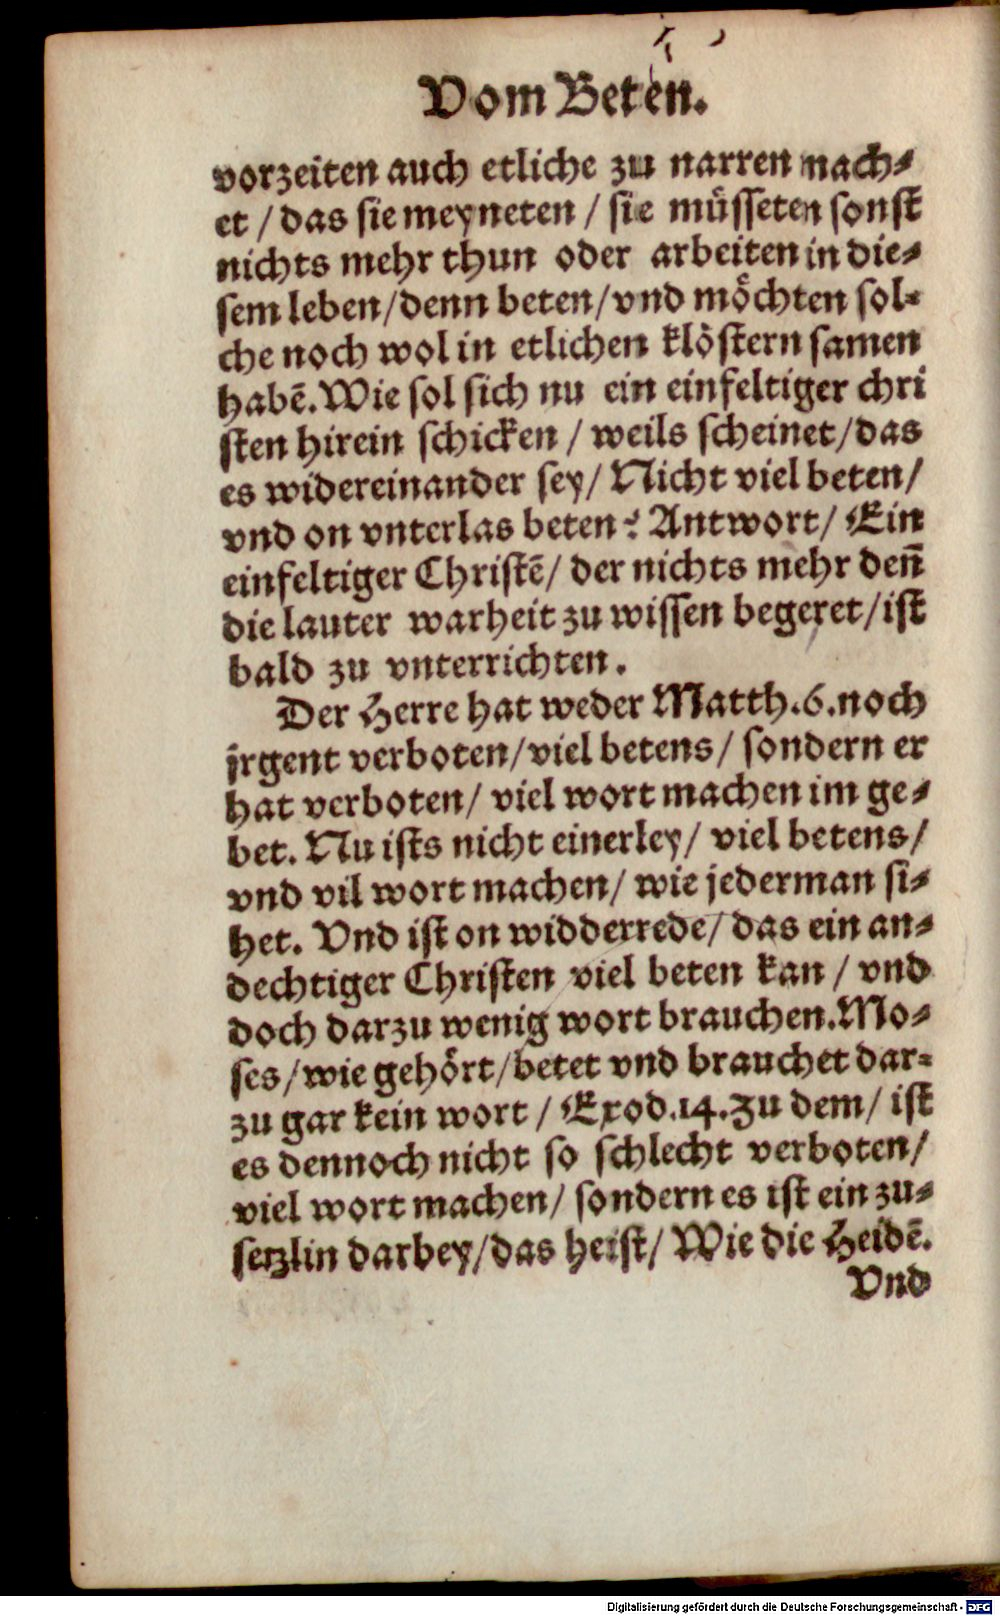 Vom Beten.
vorzeiten auch etliche zu narren mach⸗
et / das sie meyneten / sie müsseten sonst
nichts mehr thun oder arbeiten in die⸗
sem leben/denn beten/vnd möchten sol⸗
che noch wol in etlichen klöstern samen
habē. Wie sol sich nu ein einfeltiger chri
sten hirein schicken / weils scheinet/das
es widereinander sey/ Nicht viel beten/
vnd on vnterlas beten? Antwort/ Ein
einfeltiger Christē/ der nichts mehr den̄
die lauter warheit zu wissen begeret/ist
bald zu vnterrichten.
Der Herre hat weder Matth.6.noch
jrgent verboten/viel betens/ sondern er
hat verboten/ viel wort machen im ge⸗
bet. Nu ists nicht einerley/ viel betens/
vnd vil wort machen/ wie jederman si⸗
het. Vnd ist on widderrede/ das ein an⸗
dechtiger Christen viel beten kan / vnd
doch darzu wenig wort brauchen.Mo⸗
ses/wie gehört/betet vnd brauchet dar⸗
zu gar kein wort / Exod.14.Zu dem/ ist
es dennoch nicht so schlecht verboten/
viel wort machen/ sondern es ist ein zu⸗
setzlin darbey/das heist/ Wie die Heidē.
Vnd
Digitalisierung gefördert durch die Deutsche Forschungsgemeinschaft - DFG